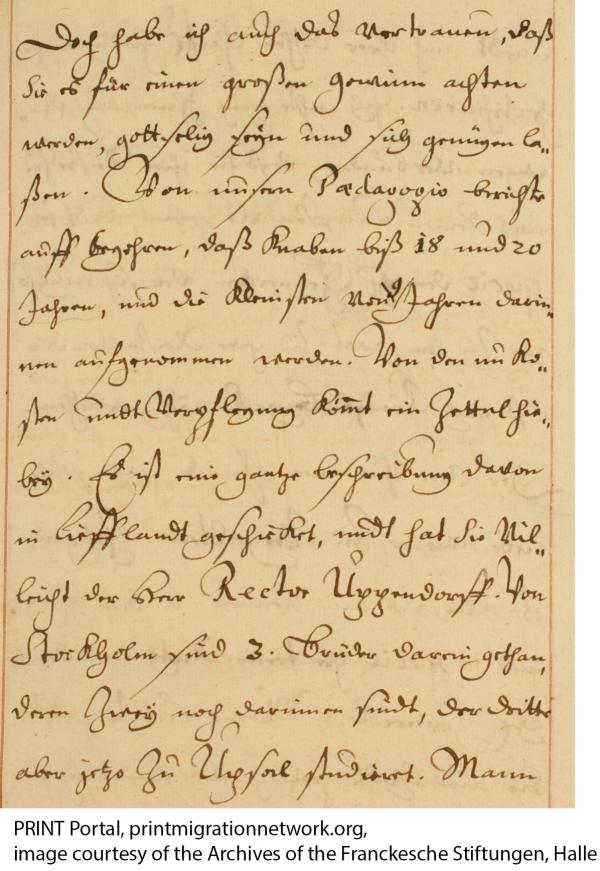 Doch habe ich auch das Vertrauen, daß
Sie es für einen großen gewinn achten
werden, gottselig seyn und sich genügen la„
ßen. Von unserm Pædagogio berichte
auff begehren, daß Knaben biß 18 und 20
Jahren, und die Kleinsten von Jahren darin„
nen aufgenommen werden. Von den Ko„
sten undt Verpflegung Kömt ein Zettul hie„
bey. Es ist eine gantze beschreibung davon
in Liefflandt geschicket, undt hat Sie Vil„
leicht der Herr Rector Uppendorff. Von
StocKholm sind 3. Brüder darein gethan,
deren Zwey noch darinnen sindt, der dritte
aber jetzo Zu Upsal studieret. Mann
PRINT Portal, printmigrationnetwork.org,
image courtesy of the Archives of the Franckesche Stiftungen, Halle